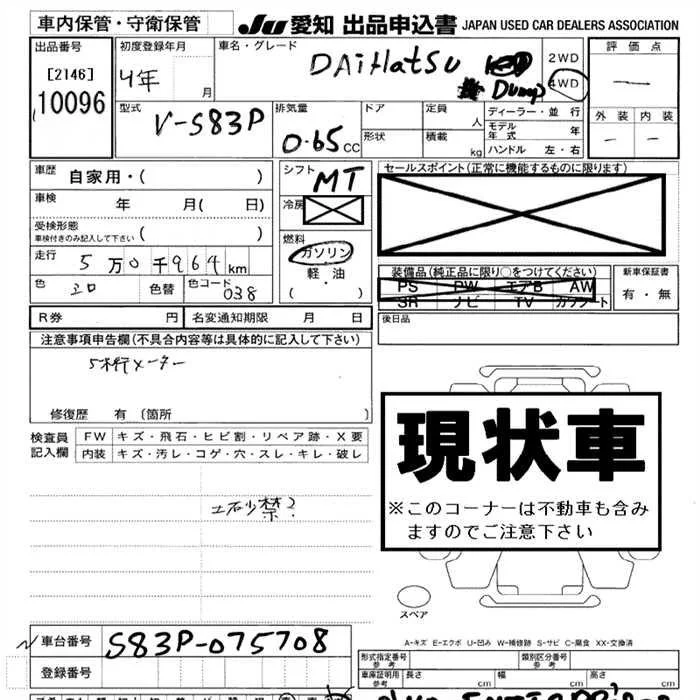 車内保管・守衛保管
JU 愛知 出品申込書 JAPAN USED CAR DEALERS ASSOCIATION
出品番号
[2146]
10096
初度登録年月
4年 月
車名・グレード
DAIHATSU
Dump
2WD
4WD
評価点
—
型式
V-S83P
排気量
0.65 CC
ドア
形状
定員 人
積載 kg
ディーラー・並行
モデル年式 年
ハンドル 左・右
外装 内装
— —
車歴 自家用・( )
車検 年 月( 日)
受検形態
車検付きのみ記入して下さい ( )
走行 5万0千964km
色 シロ 色替 色コード 038
シフト
MT
冷房
燃料
ガソリン
軽・油
( ・ )
セールスポイント(正常に機能するものに限ります)
装備品(純正品に限り○をつけてください)
PS PW エアB AW
SR ナビ TV カワシート
新車保証書
有・無
R券 円 名変通知期限 月 日
後日品
注意事項申告欄(不具合内容等は具体的に記入して下さい)
5桁メーター
修復歴 有 〔箇所 〕
検査員記入欄
FW キズ・飛石・ヒビ割・リペア跡・X要
内装 キズ・汚レ・コゲ・穴・スレ・キレ・破レ
土砂禁?
現状車
※このコーナーは不動車も含み
ますのでご注意下さい
スペア
車台番号 S83P-075708
登録番号
A-キズ E-エクボ U-凹み W-補修跡 S-サビ C-腐食 XX-交換済
形式指定番号
参考
類別区分番号
参考
車庫証明用
参考
長さ cm 幅 cm 高さ cm